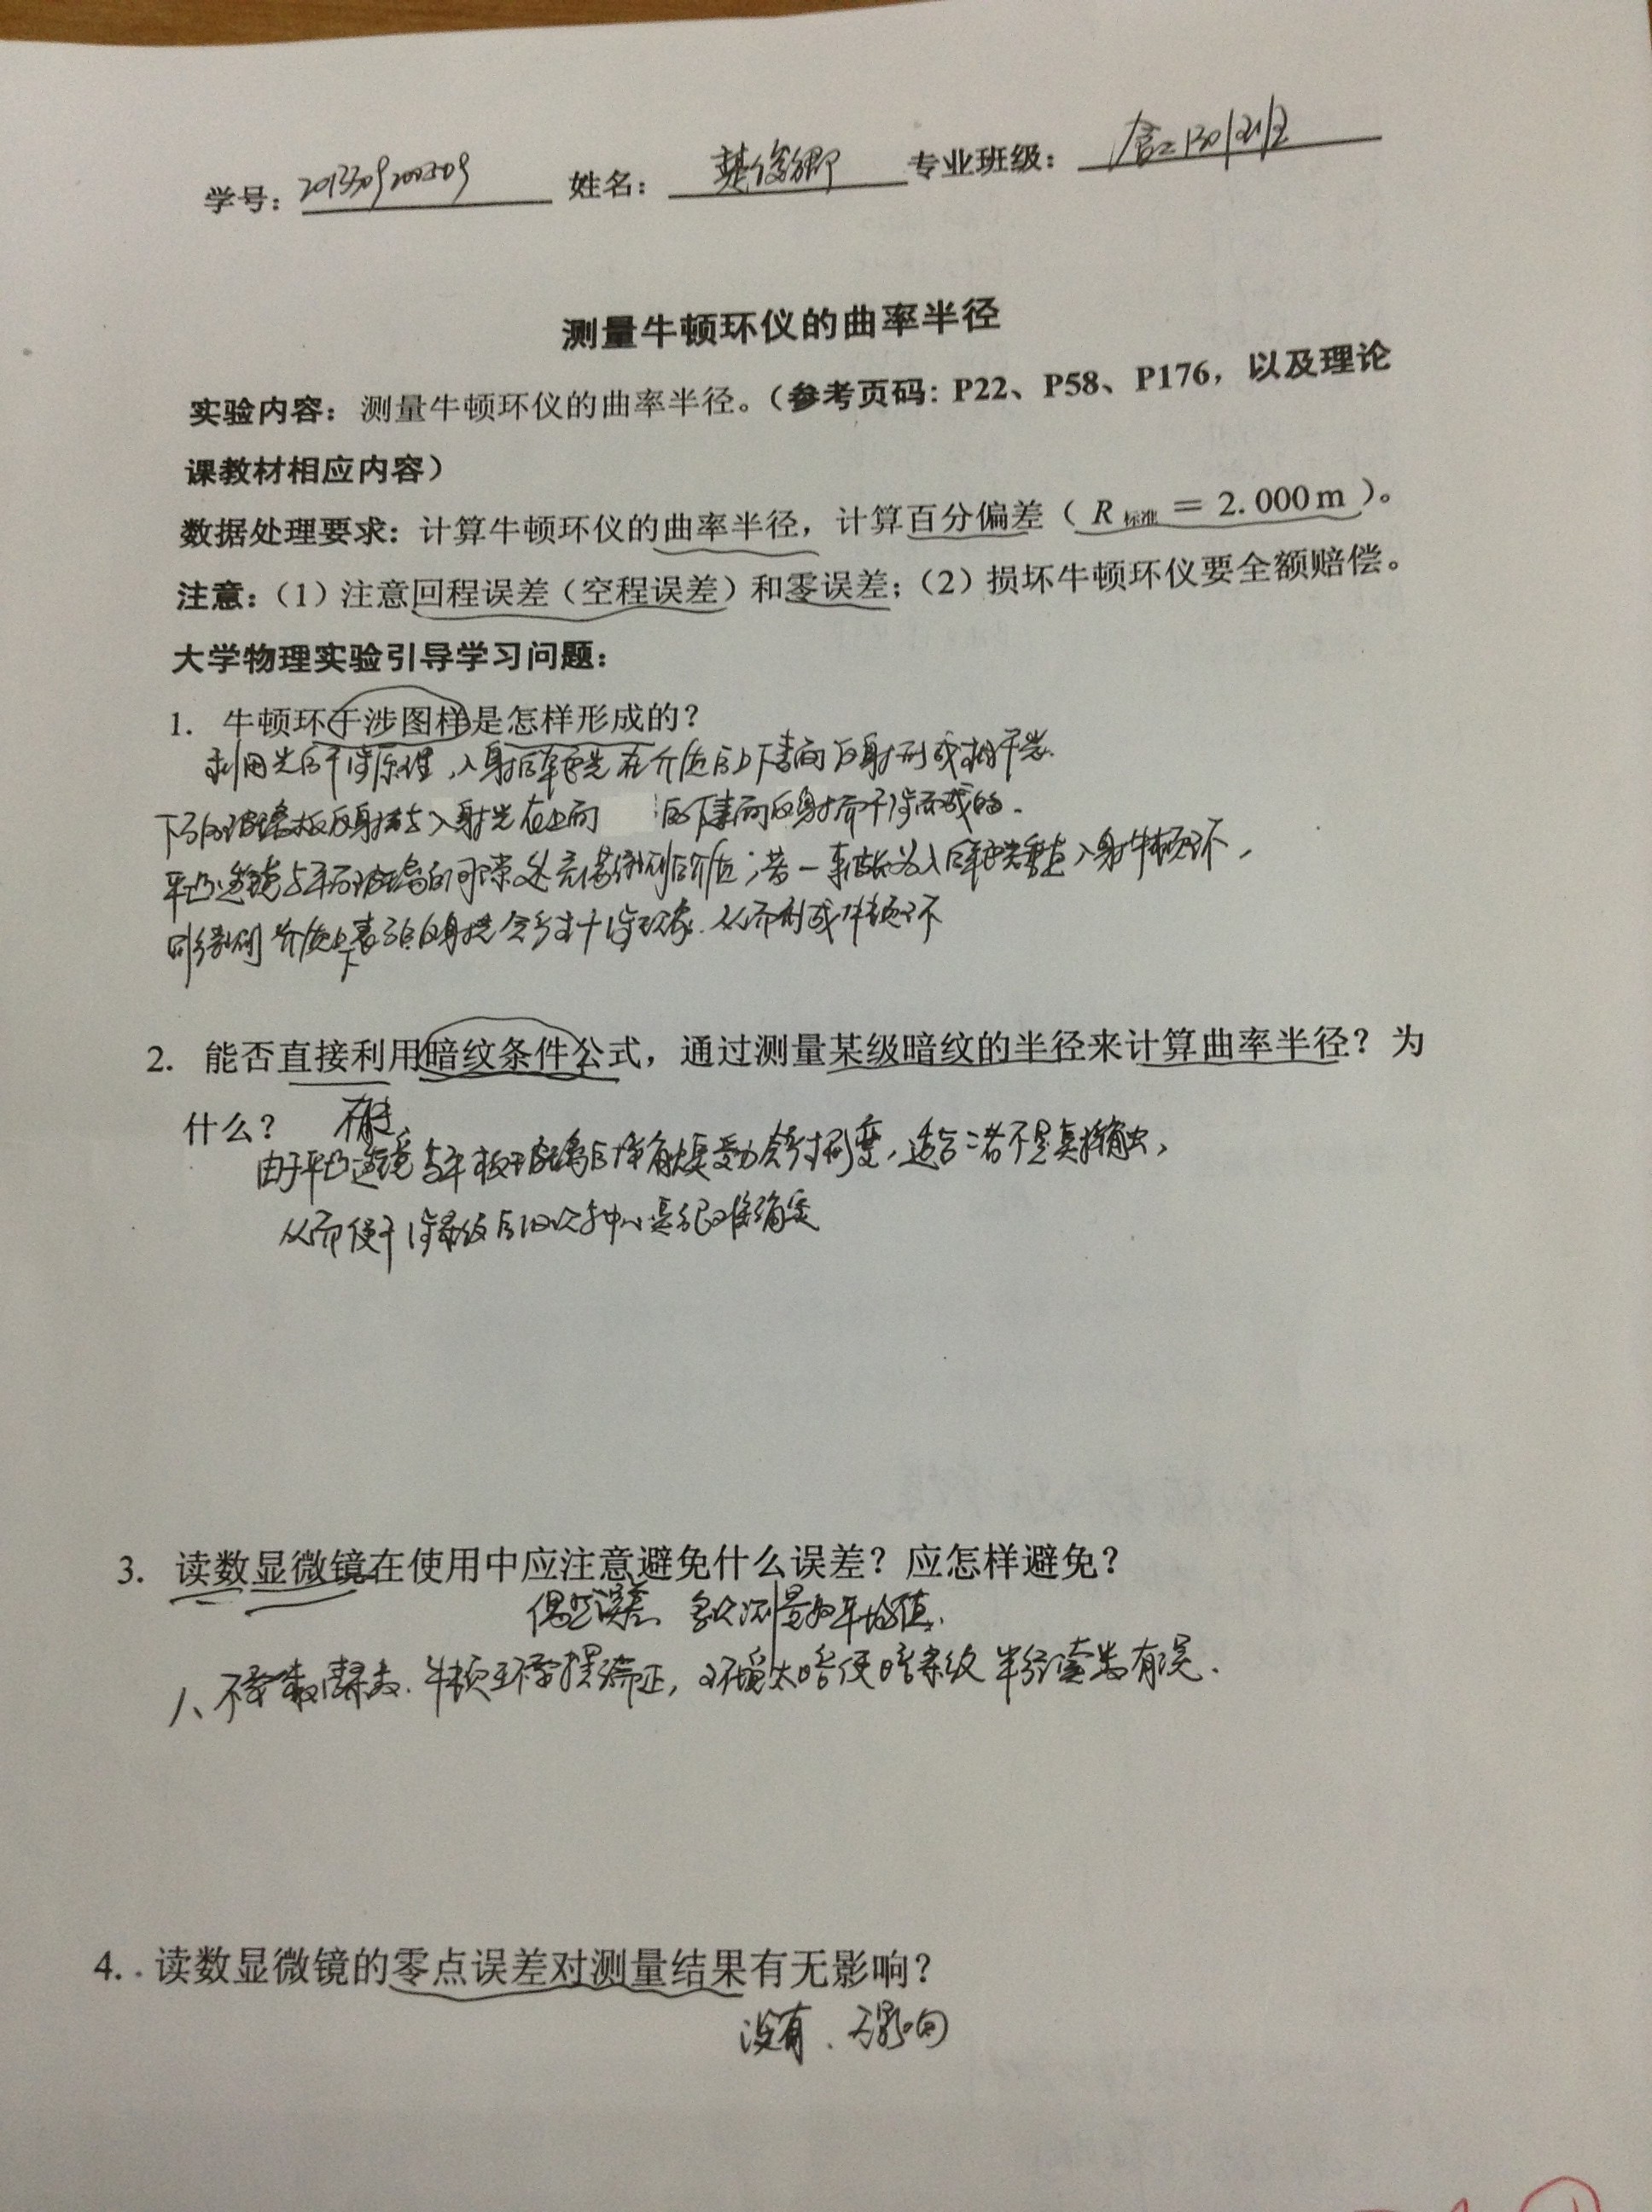 学号: 姓名: 专业班级:
测量牛顿环仪的曲率半径
实验内容:测量牛顿环仪的曲率半径。(参考页码:P22、P58、P176,以及理论
课教材相应内容)
数据处理要求:计算牛顿环仪的曲率半径,计算百分偏差(R标准=2.000m)。
注意:(1)注意回程误差(空程误差)和零误差;(2)损坏牛顿环仪要全额赔偿。
大学物理实验引导学习问题:
1. 牛顿环干涉图样是怎样形成的?
利用光的干涉原理,入射的单色光在介质的上下表面反射形成相干光.
下方的玻璃板反射光与入射光在上面 的下表面反射而干涉而成的.
平凸透镜与平面玻璃的间隙处充满 介质;若一束波长为入的单色光垂直入射牛顿环,
则 介质上下表面的反射光会产生干涉现象.从而形成牛顿环
2. 能否直接利用暗纹条件公式,通过测量某级暗纹的半径来计算曲率半径?为
什么? 不能
由于平凸透镜与平板玻璃的 受力会产生形变,适合二者不是真接触,
从而使干涉条纹的级次与中心是很难确定
3. 读数显微镜在使用中应注意避免什么误差?应怎样避免?
偶然误差、多次测量取平均值.
牛顿环 摆 正,环境太暗使暗条纹半径读数有误.
4. 读数显微镜的零点误差对测量结果有无影响?
没有.不影响